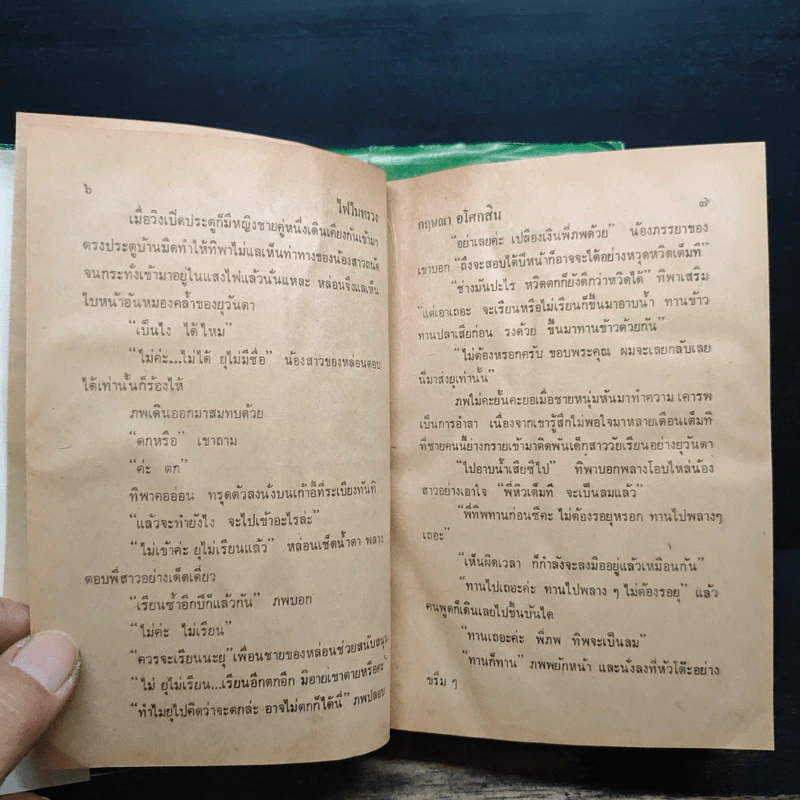 ๖
ไฟในทรวง
เมื่อวิ่งเปิดประตูก็มีหญิงชายคู่หนึ่งเดินเคียงกันเข้ามา
ตรงประตูบ้านมืดทำให้ทิพาไม่แลเห็นท่าทางของน้องสาวถนัด
จนกระทั่งเข้ามาอยู่ในแสงไฟแล้วนั่นแหละ หล่อนจึงแลเห็น
ใบหน้าอันหมองคล้ำของยุวันดา
“เป็นไง ได้ไหม”
“ไม่ค่ะ...ไม่ได้ ยุไม่มีชื่อ” น้องสาวของหล่อนตอบ
ได้เท่านั้นก็ร้องไห้
ภพเดินออกมาสมทบด้วย
“ตกหรือ” เขาถาม
“ค่ะ ตก”
ทิพาคออ่อน ทรุดตัวลงนั่งบนเก้าอี้ที่ระเบียงทันที
“แล้วจะทำยังไง จะไปเข้าอะไรล่ะ”
“ไม่เข้าค่ะ ยุไม่เรียนแล้ว” หล่อนเช็ดน้ำตา พลาง
ตอบพี่สาวอย่างเด็ดเดี่ยว
“เรียนซ้ำอีกปีก็แล้วกัน” ภพบอก
“ไม่ค่ะ ไม่เรียน”
“ควรจะเรียนนะยุ” เพื่อนชายของหล่อนช่วยสนับสนุน
“ไม่ ยุไม่เรียน...เรียนอีกตกอีก มิอายเขาตายหรือคะ”
“ทำไมยุไปคิดว่าจะตกล่ะ อาจไม่ตกก็ได้นี่” ภพปลอบ
กฤษณา อโศกสิน
๗
“อย่าเลยค่ะ เปลืองเงินพี่ภพด้วย” น้องภรรยาของ
เขาบอก “ถึงจะสอบได้ปีหน้าก็อาจจะได้อย่างหวุดหวิดเต็มที”
“ช่างมันปะไร หวิดตกก็ยังดีกว่าหวิดได้” ทิพาเสริม
“แต่เอาเถอะ จะเรียนหรือไม่เรียนก็ขึ้นมาอาบน้ำ ทานข้าว
ทานปลาเสียก่อน รงด้วย ขึ้นมาทานข้าวด้วยกัน”
“ไม่ต้องหรอกครับ ขอบพระคุณ ผมจะเลยกลับเลย
นี่มาส่งยุเท่านั้น”
ภพไม่คะยั้นคะยอเมื่อชายหนุ่มหันมาทำความเคารพ
เป็นการอำลา เนื่องจากเขารู้สึกไม่พอใจมาหลายเดือนเต็มที
ที่ชายคนนี้ย่างกรายเข้ามาติดพันเด็กสาววัยเรียนอย่างยุวันดา
“ไปอาบน้ำเสียซีไป” ทิพาบอกพลางโอบไหล่น้อง
สาวอย่างเอาใจ “พี่หิวเต็มที จะเป็นลมแล้ว”
“พี่ทิพทานก่อนซีคะ ไม่ต้องรอยุหรอก ทานไปพลางๆ
เถอะ”
“เห็นผิดเวลา ก็กำลังจะลงมืออยู่แล้วเหมือนกัน”
“ทานไปเถอะค่ะ ทานไปพลาง ๆ ไม่ต้องรอยุ” แล้ว
คนพูดก็เดินเลยไปขึ้นบันได
“ทานเถอะค่ะ พี่ภพ ทิพจะเป็นลม”
“ทานก็ทาน” ภพพยักหน้า และนั่งลงที่หัวโต๊ะอย่าง
ขรึม ๆ